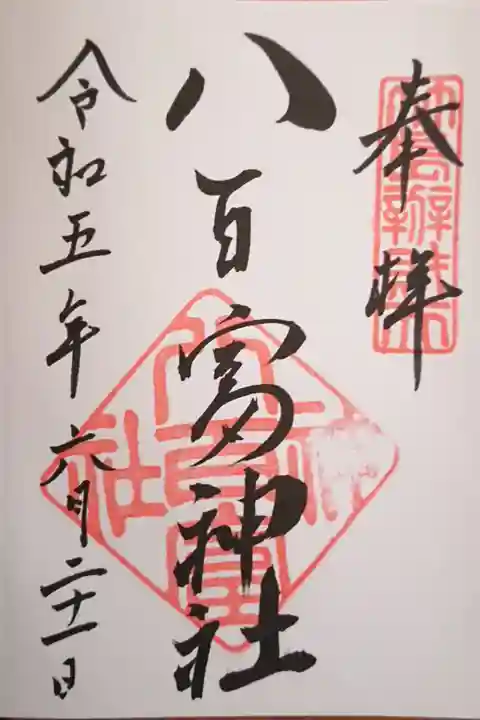 奉拝
八百富神社
令和五年六月二十一日
八百富神社